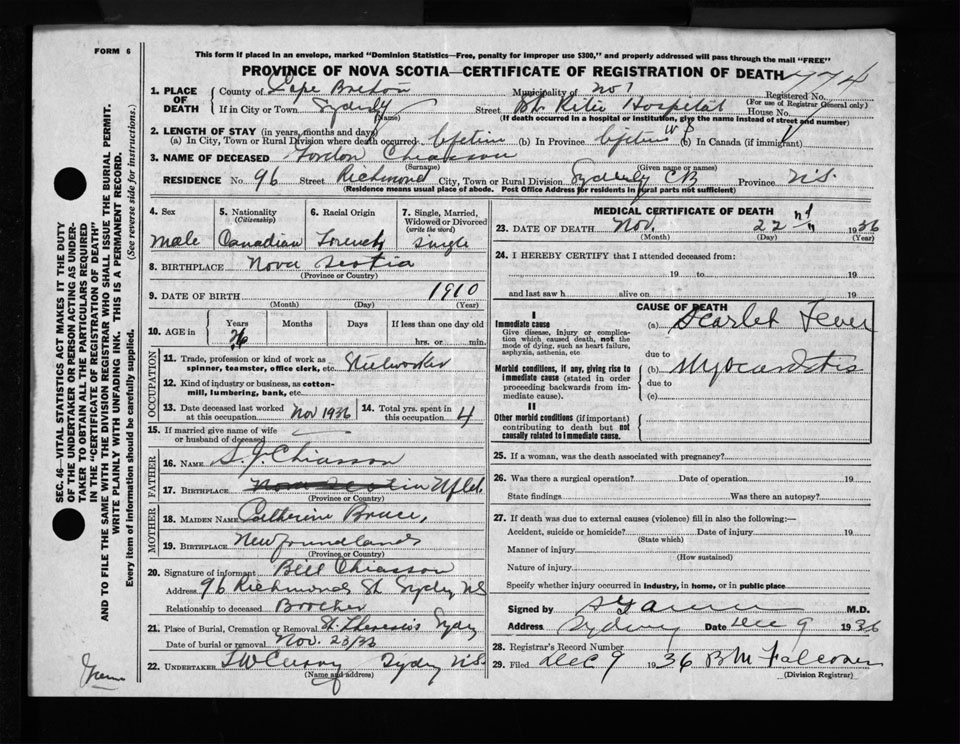 FORM 6
This form if placed in an envelope, marked "Dominion Statistics—Free, penalty for improper use $300," and properly addressed will pass through the mail "FREE"
PROVINCE OF NOVA SCOTIA—CERTIFICATE OF REGISTRATION OF DEATH
1. PLACE OF DEATH
County of Cape Breton Municipality of No 1 Registered No.
(For use of Registrar General only)
If in City or Town Sydney Street St. Rita Hospital House No.
(Name) (If death occurred in a hospital or institution, give the name instead of street and number)
2. LENGTH OF STAY (in years, months and days)
(a) In City, Town or Rural Division where death occurred lifetime (b) In Province lifetime (c) In Canada (if immigrant)
3. NAME OF DECEASED Gordon Chiasson
(Surname) (Given name or names)
RESIDENCE No 96 Street Richmond City, Town or Rural Division Sydney CB Province N.S.
(Residence means usual place of abode. Post Office Address for residents in rural parts not sufficient)
4. Sex male
5. Nationality (Citizenship) Canadian
6. Racial Origin French
7. Single, Married, Widowed or Divorced (write the word) single
8. BIRTHPLACE Nova Scotia
(Province or Country)
9. DATE OF BIRTH 1910
(Month) (Day) (Year)
10. AGE in Years 26 Months Days If less than one day old
hrs. or min.
OCCUPATION
11. Trade, profession or kind of work as spinner, teamster, office clerk, etc. Steelworker
12. Kind of industry or business, as cotton-mill, lumbering, bank, etc.
13. Date deceased last worked at this occupation Nov 1936 14. Total yrs. spent in this occupation 4
15. If married give name of wife or husband of deceased
FATHER
16. NAME S. J. Chiasson
17. BIRTHPLACE Nova Scotia Nfld.
(Province or Country)
MOTHER
18. MAIDEN NAME Catherine Bruce,
19. BIRTHPLACE Newfoundland
(Province or Country)
20. Signature of informant Bill Chiasson
Address 96 Richmond St Sydney NS
Relationship to deceased Brother
21. Place of Burial, Cremation or Removal St. Theresa's Sydney
Date of burial or removal Nov. 23/36
22. UNDERTAKER T W Curry Sydney N.S.
(Name and address)
MEDICAL CERTIFICATE OF DEATH
23. DATE OF DEATH Nov. 22nd 1936
(Month) (Day) (Year)
24. I HEREBY CERTIFY that I attended deceased from:
19 to 19
and last saw h alive on 19
CAUSE OF DEATH
I
Immediate cause
Give disease, injury or complication which caused death, not the mode of dying, such as heart failure, asphyxia, asthenia, etc
(a) Scarlet Fever
due to
Morbid conditions, if any, giving rise to immediate cause (stated in order proceeding backwards from immediate cause).
(b) Myocarditis
due to
(c)
II
Other morbid conditions (if important) contributing to death but not causally related to immediate cause.
25. If a woman, was the death associated with pregnancy?
26. Was there a surgical operation? Date of operation 19
State findings Was there an autopsy?
27. If death was due to external causes (violence) fill in also the following:—
Accident, suicide or homicide? Date of injury 19
(State which)
Manner of injury
(How sustained)
Nature of injury
Specify whether injury occurred in industry, in home, or in public place
Signed by M.D.
Address Sydney Date Dec 9 1936
28. Registrar's Record Number
29. Filed Dec 9 1936 B M Falconer
(Division Registrar)
SEC. 46—VITAL STATISTICS ACT MAKES IT THE DUTY
OF THE UNDERTAKER OR PERSON ACTING AS UNDER-
TAKER TO OBTAIN ALL THE PARTICULARS REQUIRED
IN THE "CERTIFICATE OF REGISTRATION OF DEATH"
AND TO FILE THE SAME WITH THE DIVISION REGISTRAR WHO SHALL ISSUE THE BURIAL PERMIT.
WRITE PLAINLY WITH UNFADING INK. THIS IS A PERMANENT RECORD.
Every item of information should be carefully supplied. (See reverse side for instructions.)